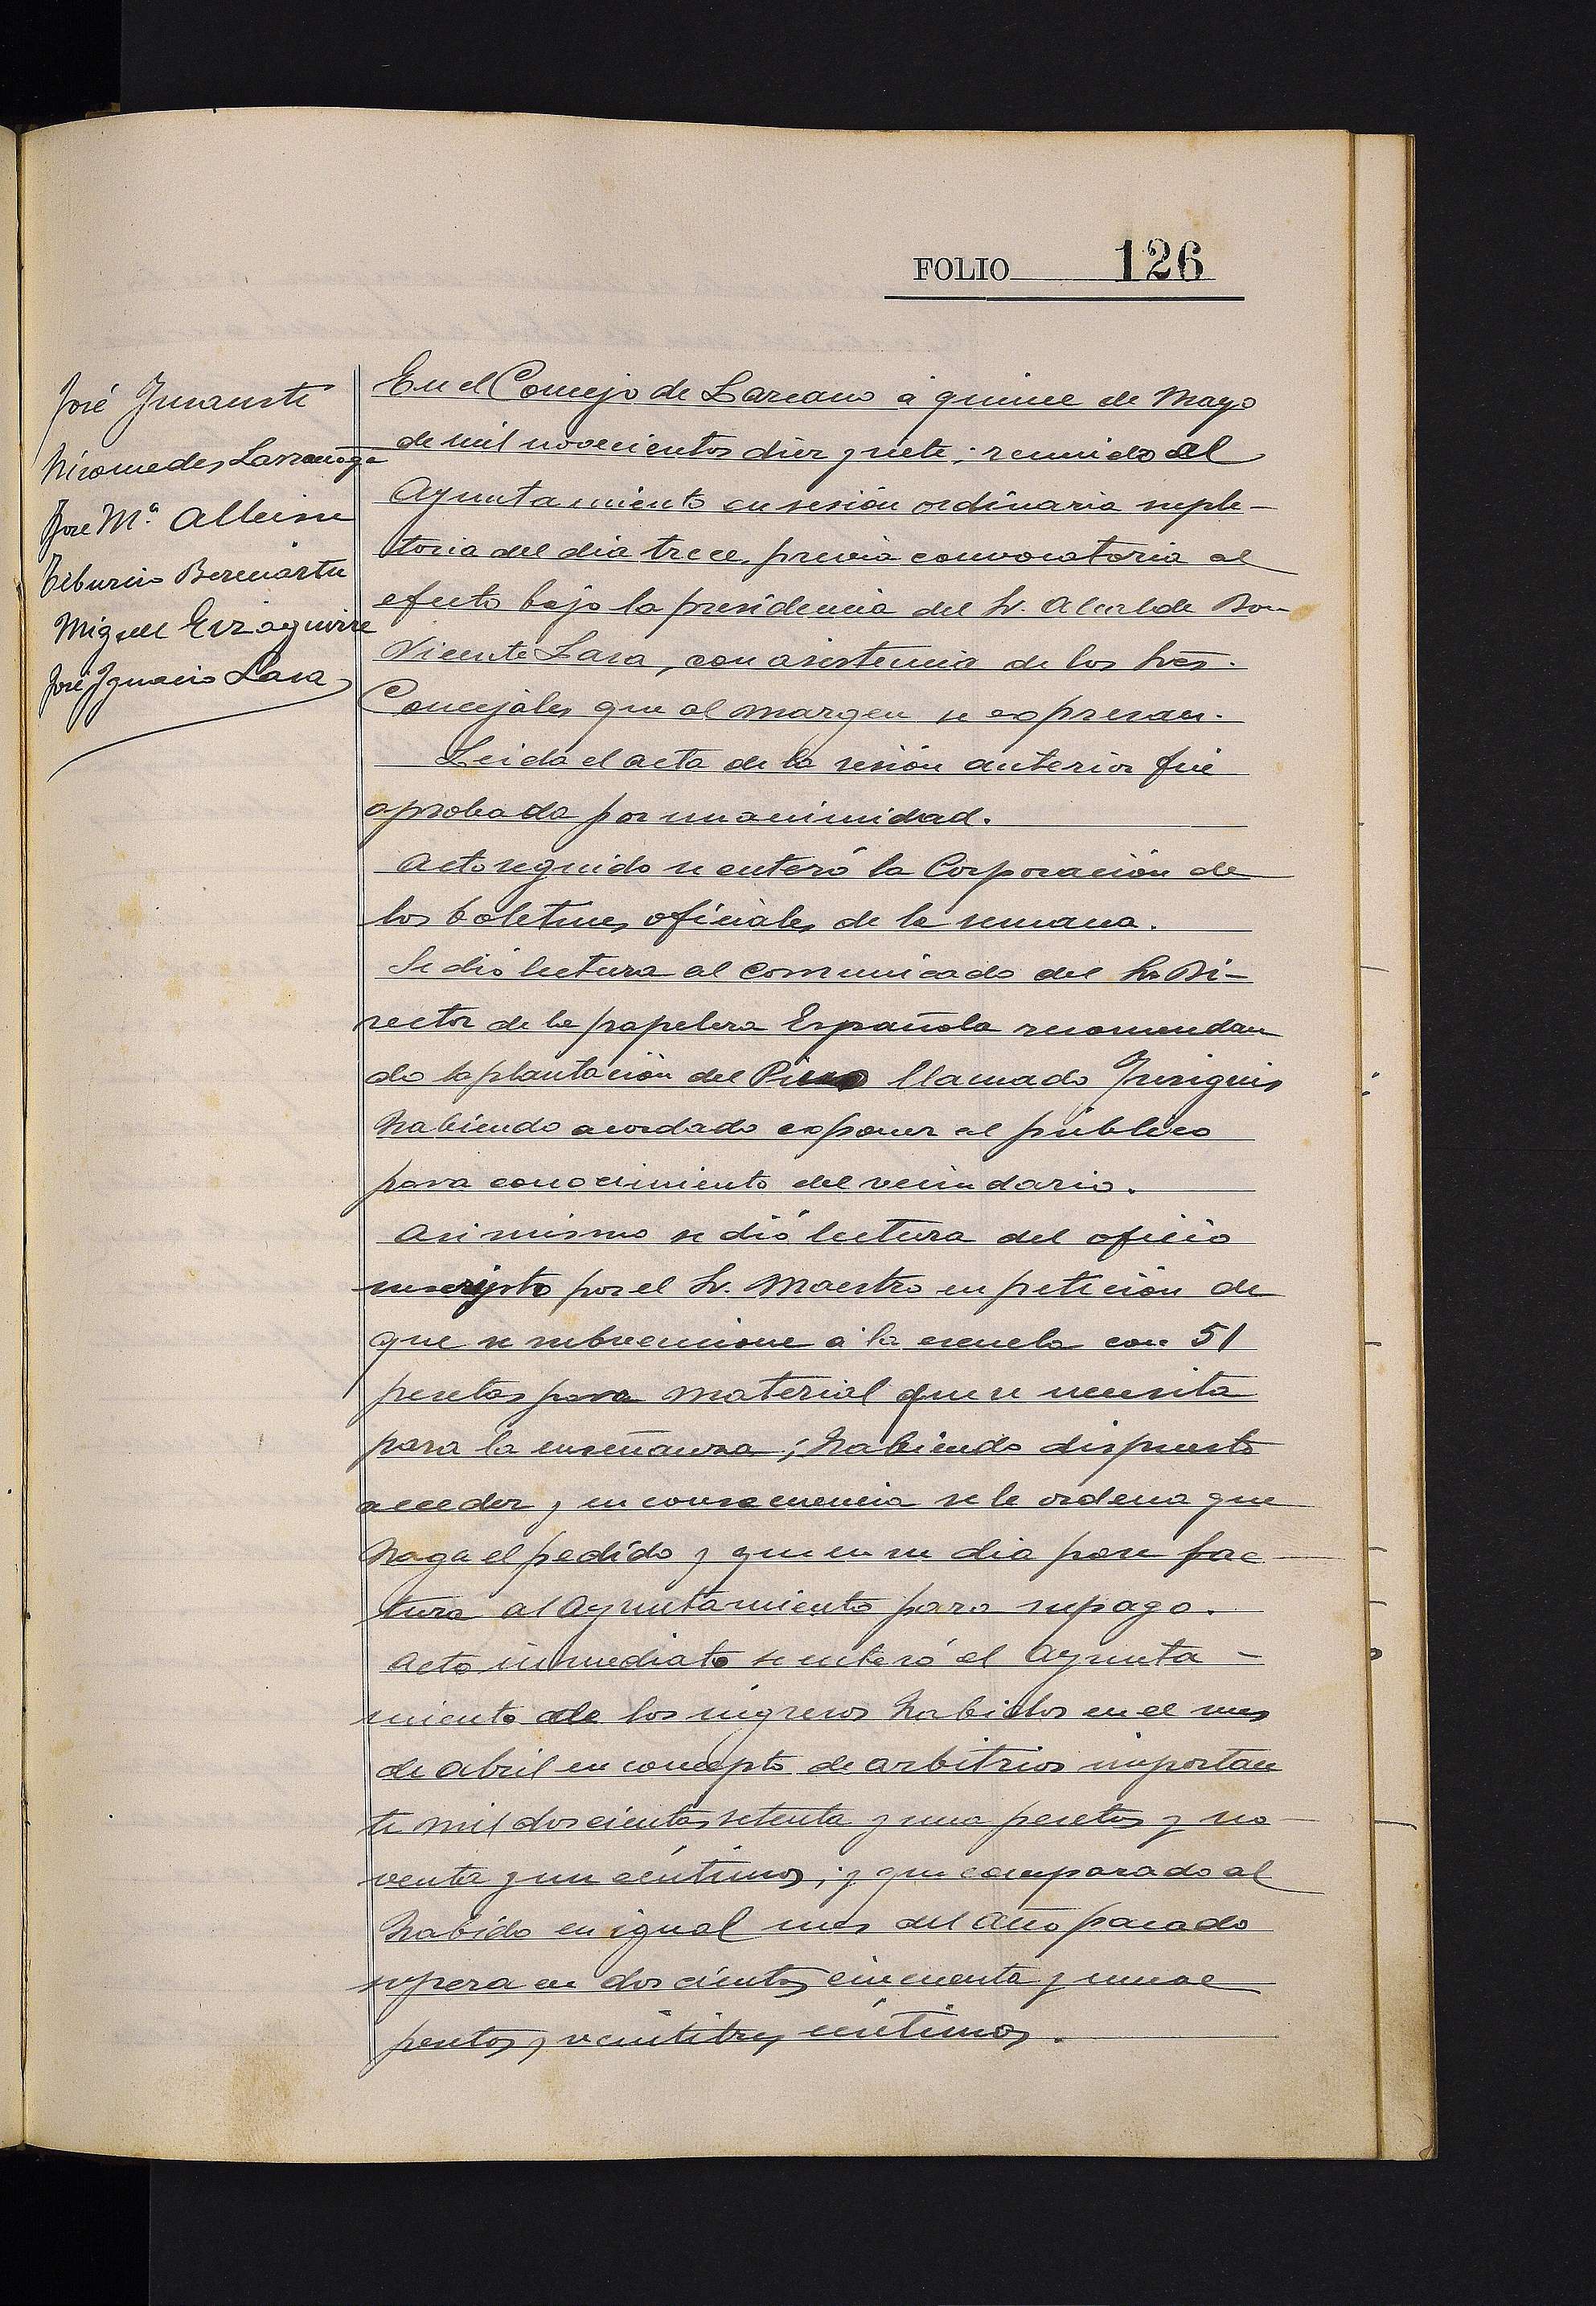 FOLIO 126
José Insausti
Nicomedes Larrañaga
José Mª Alberisu
Tiburcio Bereciartu
Miguel Eizaguirre
José Ignacio Lasa
En el Concejo de Lazcano á quince de Mayo
de mil novecientos diez y siete; reunido el
Ayuntamiento en sesión ordinaria suple-
toria del dia trece, previa convocatoria al
efecto bajo la presidencia del Sr. Alcalde Don
Vicente Lasa, con asistencia de los Sres.
Concejales que al margen se expresan.
Leida el acta de la sesión anterior fué
aprobada por unanimidad.
Acto seguido se enteró la Corporación de
los boletines oficiales de la semana.
Se dió lectura al comunicado del Sr. Di-
rector de la papelera Española recomendan
do la plantación del Pino llamado Insignis
habiendo acordado exponer al público
para conocimiento del vecindario.
Asi mismo se dió lectura del oficio
suscripto por el Sr. Maestro en petición de
que se subvencione á la escuela con 51
pesetas para material que se necesita
para la enseñanza; habiendo dispuesto
acceder y en consecuencia se le ordena que
haga el pedido y que en su dia pase fac
tura al Ayuntamiento para su pago.
Acto inmediato se enteró el Ayunta-
miento de los ingresos habidos en el mes
de Abril en concepto de arbitrios importan
te mil doscientas setenta y una pesetas y no
venta y un céntimos; y que comparado al
habido en igual mes del año pasado
supera en doscientas cincuenta y nueve
pesetas y veintitres céntimos.